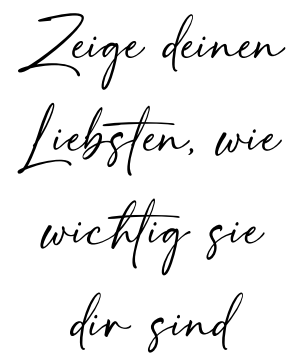 Zeige deinen
Liebsten, wie
wichtig sie
dir sind